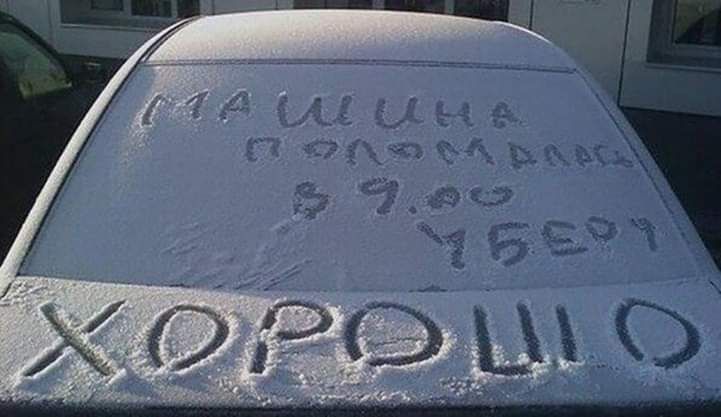 МАШИНА
ПОЛОМАЛАСЬ
В 9.00
УБЕРУ
ХОРОШО